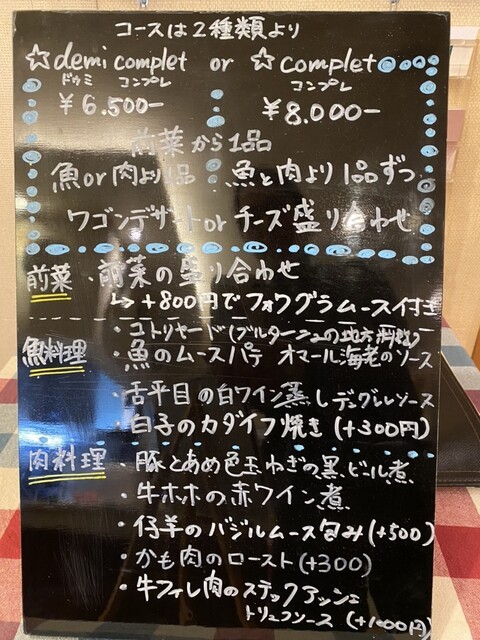 コースは2種類より
☆demi complet or ☆complet
ドゥミ コンプレ コンプレ
¥6.500- ¥8.000-
前菜から1品
魚or肉より1品 魚と肉より1品ずつ
ワゴンデザートorチーズ盛り合わせ
前菜 ・前菜の盛り合わせ
↳+800円でフォワグラムース付き
・コトリヤード(ブルターニュの地方料理)
魚料理 ・魚のムースパテ オマール海老のソース
・舌平目の白ワイン蒸し デュグレソース
・白子のカダイフ焼き(+300円)
肉料理 ・豚とあめ色玉ねぎの黒ビール煮
・牛ホホの赤ワイン煮
・仔羊のバジルムース包み(+500)
・かも肉のロースト(+300)
・牛フィレ肉のステック
トリュフソース (+1000円)